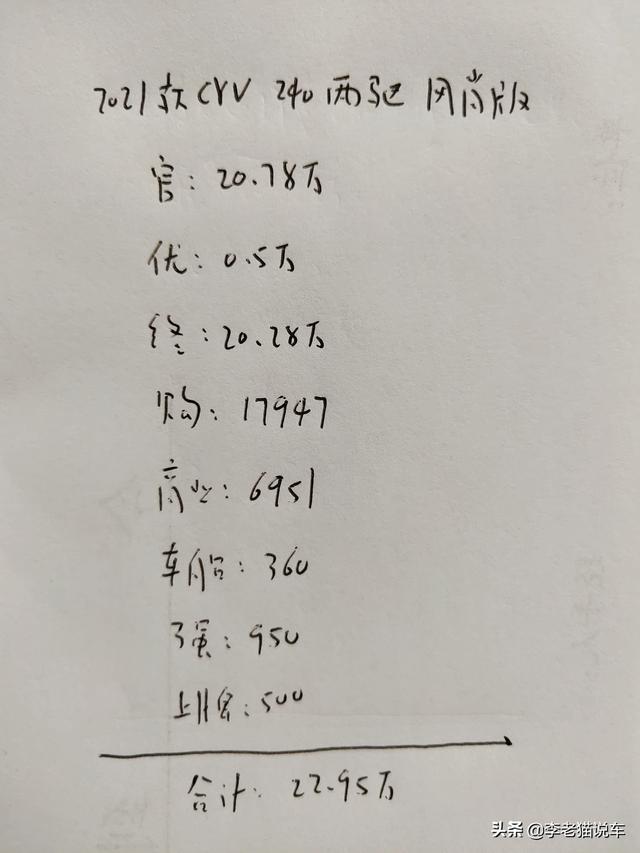 2021款CRV 240两驱 风尚版
官: 20.78万
优: 0.5万
终: 20.28万
购: 17947
商业: 6951
车船: 360
强: 950
上牌: 500
合计: 22.95万
头条 @李老猫说车